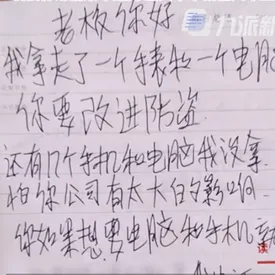 九派新
老板你好
我拿走了一个手表和一个电脑
你要改进防盗
还有几个手机和电脑我没拿
怕你公司有太大的影响
你如果想要电脑和手机